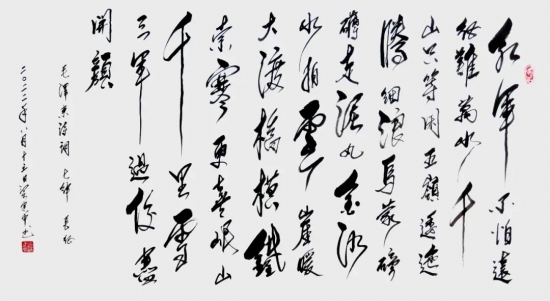 紅軍不怕遠
征難萬水千
山只等閑五嶺逶迤
騰細浪烏蒙磅
礴走泥丸金沙
水拍雲崖暖
大渡橋橫鐵
索寒更喜岷山
千里雪
三軍過後盡
開顏
毛澤東詩詞 七律 長征
二〇二二年八月十五日